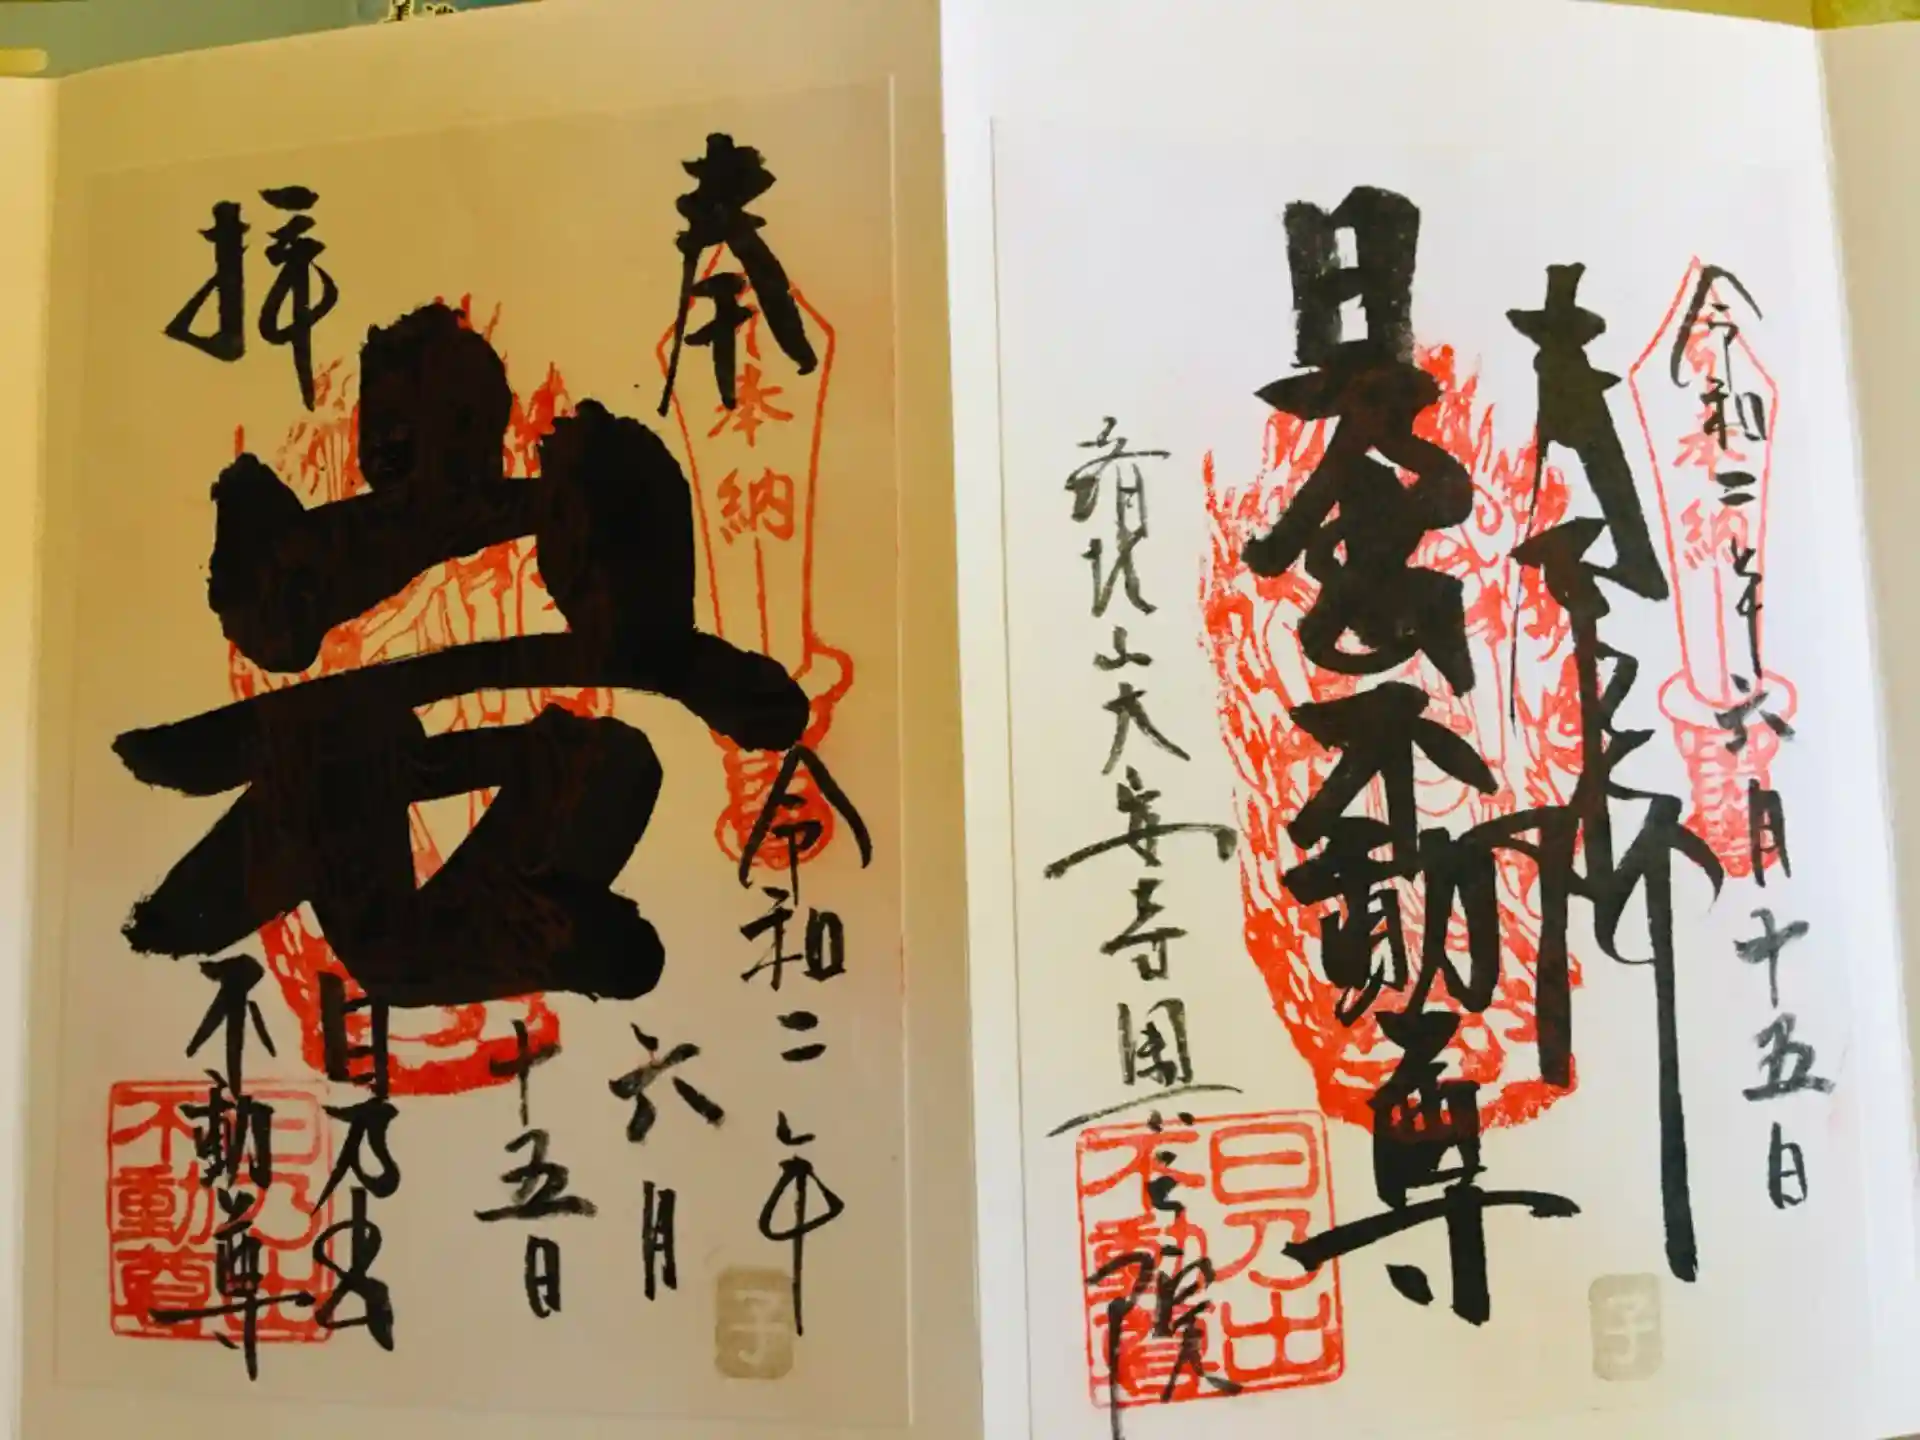 令和二年六月十五日
奉拝
奉納
日乃出不動尊
清光山大安寺圓
院
日乃出
不動尊
子
奉
拝
奉納
岩
令和二年
六月
十五日
日乃出
不動尊
日乃出
不動尊
子